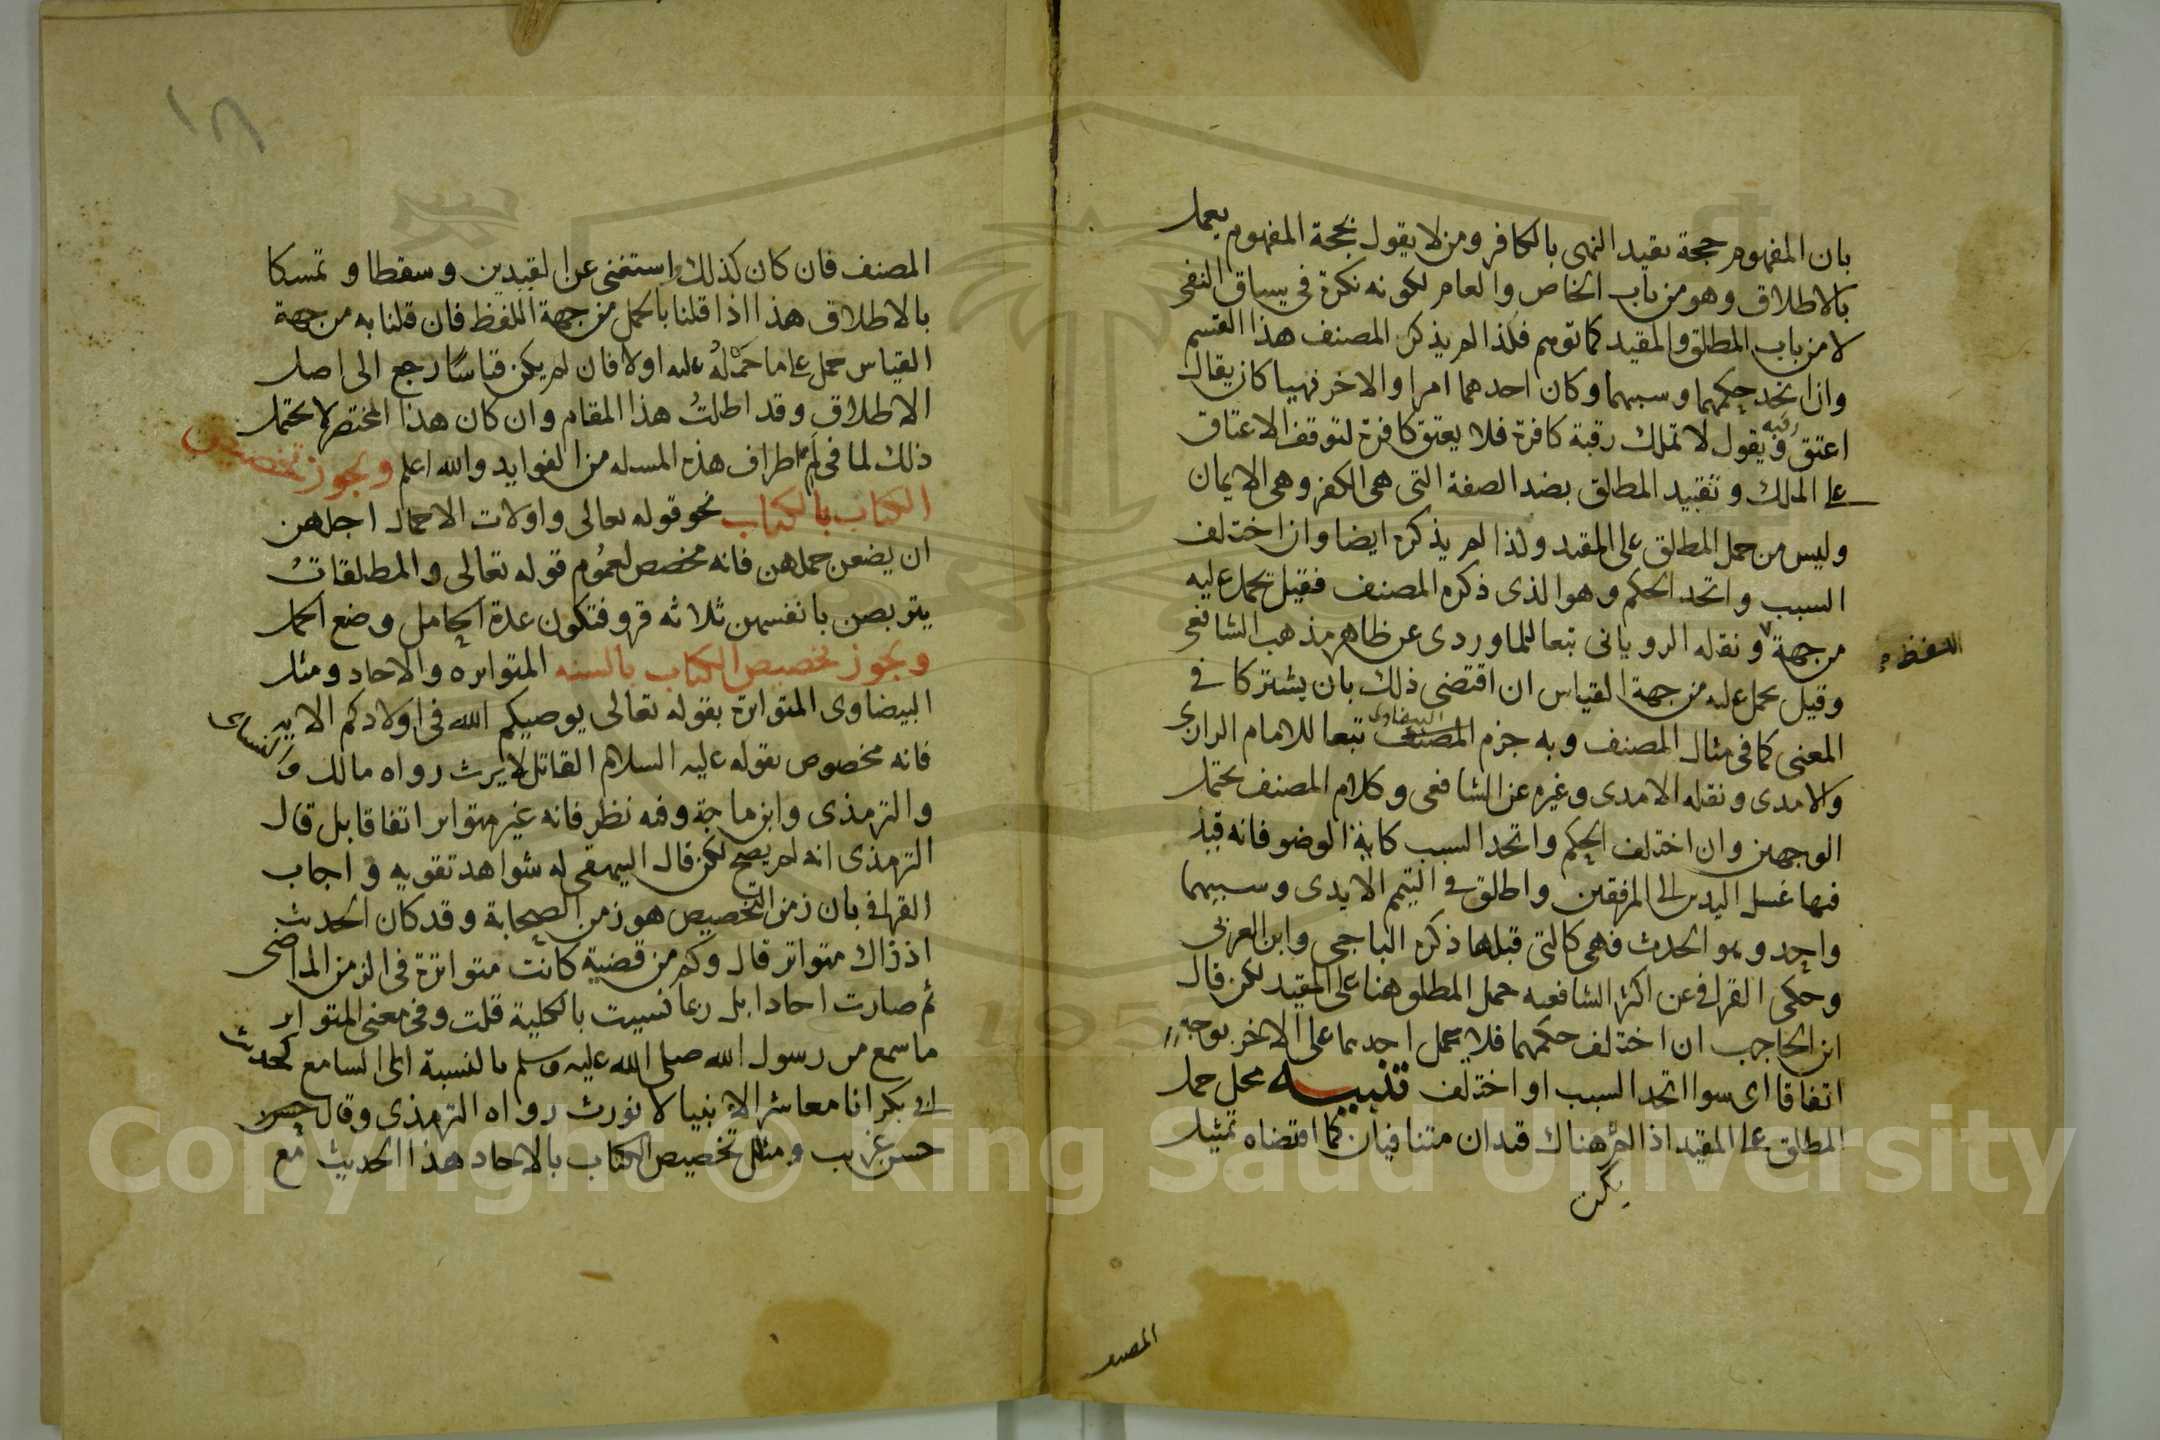 بان المفهوم حجة يقيد النهى بالكافر ومن لا يقول بحجة المفهوم يعمل
بالاطلاق وهو من باب الخاص والعام لكونه نكرة فى سياق النفى
لا من باب المطلق والمقيد كما توهم فلذا لم يذكر المصنف هذا القسم
وان اتحد حكمهما وسببهما وكان احدهما امرا والاخر نهيا كان يقال
اعتق رقبه ويقول لا تملك رقبة كافرة فلا يعتق كافرة لتوقف الاعتاق
على الملك وتقييد المطلق بضد الصفة التى هى الكفر وهى الايمان
وليس من حمل المطلق على المقيد ولذا لم يذكره ايضا وان اختلف
السبب واتحد الحكم وهو الذى ذكره المصنف فقيل يحمل عليه
من جهة اللفظ ونقله الرويانى تبعا للماوردى عن ظاهر مذهب الشافعى
وقيل يحمل عليه من جهة القياس ان اقتضى ذلك بان يشتركا فى
المعنى كما فى مثال المصنف وبه جزم المصنف البيضاوى تبعا للامام الرازى
والامدى ونقله الامدى وغيره عن الشافعى وكلام المصنف يحتمل
الوجهين وان اختلف الحكم واتحد السبب كاية الوضو فانه قيد
فيها غسل اليدين الى المرفقين واطلق فى التيمم الايدى وسببهما
واحد وهو الحدث فهى كالتى قبلها ذكره الباجى وابن العربى
وحكى القرافى عن اكثر الشافعيه حمل المطلق هنا على المقيد لكن قال
ابن الحاجب ان اختلف حكمهما فلا يحمل احدهما على الاخر بوجه
اتفاقا اى سوا اتحد السبب او اختلف تنبيه محل حمل
المطلق على المقيد اذا لم يكن هناك قيدان متنافيان كما اقتضاه تمثيل
المصنف
١٢
المصنف فان كان كذلك استغنى عن القيدين وسقطا وتمسكا
بالاطلاق هذا اذا قلنا بالحمل من جهة اللفظ فان قلنا به من جهة
القياس حمل على ما حمله عليه اولا فان لم يكن قياسًا رجع الى اصل
الاطلاق وقد اطلتُ هذا المقام وان كان هذا المختصر لا يحتمل
ذلك لما فى اطراف هذه المسله من الفوايد والله اعلم ويجوز تخصيص
الكتاب بالكتاب نحو قوله تعالى واولات الاحمال اجلهن
ان يضعن حملهن فانه مخصص لعموم قوله تعالى والمطلقاتُ
يتربصن بانفسهن ثلاثه قرو فتكون عدة الحامل وضع الحمل
ويجوز تخصيص الكتاب بالسنه المتواتره والاحاد ومثل
البيضاوى المتواترة بقوله تعالى يوصيكم الله فى اولادكم الايه
فانه مخصوص بقوله عليه السلام القاتل لا يرث رواه مالك والنساى
والترمذى وابن ماجة وفيه نظر فانه غير متواتر اتفاقا بل قال
الترمذى انه لم يصح لكن قال البيهقى له شواهد تقويه و اجاب
القرافى بان زمن التخصيص هو زمن الصحابة وقد كان الحديث
اذ ذاك متواتر قال وكم من قضية كانت متواترة فى الزمن الماضى
ثم صارت احادا بل ربما نسيت بالكلية قلت وفى معنى المتواتر
ما سمع من رسول الله صلى الله عليه وسلم بالنسبة الى السامع كحديث
ابى بكر انا معاشر الانبيا لا نورث رواه الترمذى وقال
حسن غريب ومثل تخصيص الكتاب بالاحاد هذا الحديث مع
Copyright © King Saud University